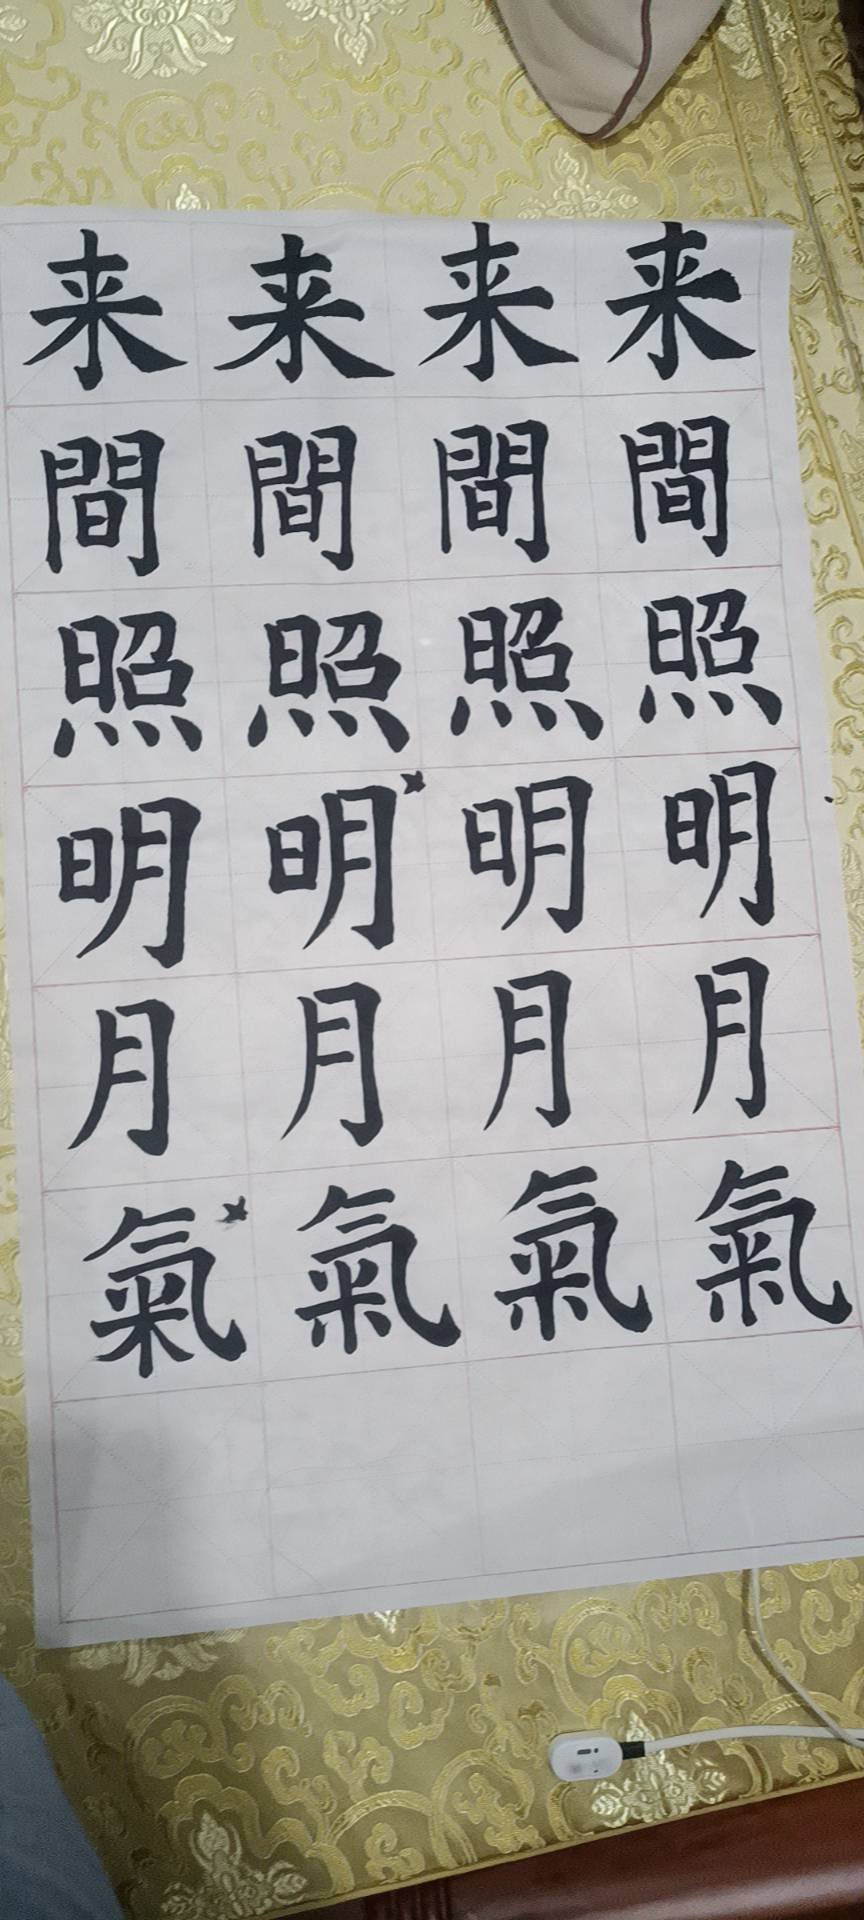 来来来来
間間間間
照照照照
明明明明
月月月月
氣氣氣氣